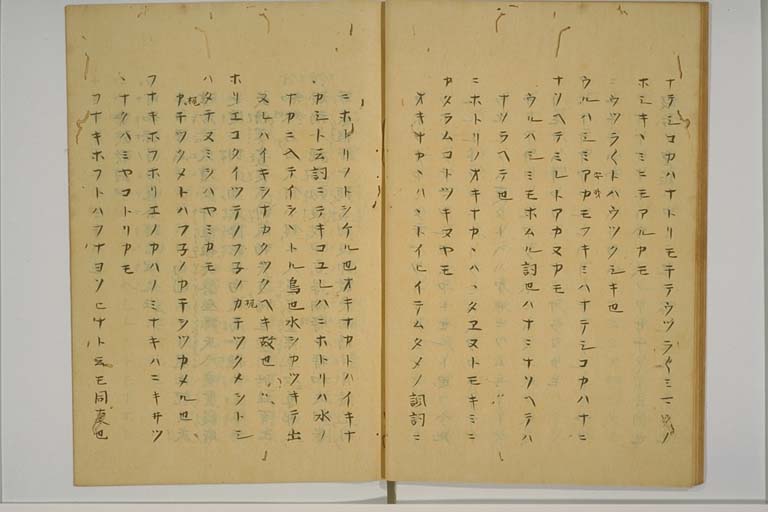 ナテシコカハナトリモテテウツラ〱ミマ
ホシキヽミニモアルカモ
ウツラ〱トハウツクシキ也
ウルハシミアカモフキミハナテシコカハナニ
ナソヘテミレトアカヌカモ
ウルハシミモホムル詞也ハナニナソヘテハ
ナソラヘテ也
ニホトリノオキナカヽハヽタエヌトモキミニ
カタラムコトツキメヤモ
オキナカヽハヽトイヒイテムタメノ諷詞ニ
ニホトリノトツケル也オキナカトハイキナ
カシト云詞ニテキコユレハニホトリハ水ノ
ナカニ入テイシヽトル鳥也水シカツキテ出
ヌレハイキシナカクツクヘキ故也
ホリエコクイツテノフ子ノカチツクメシトシ
ハタチヌミシハヤミカモ
カチツクメトハフ子ノカチシツカメル也
フナキホフホリエノカハノミナキハニキヰツ
ヽナクハミヤコトリカモ
フナキホフトハフナヨソヒナト云モ同事也